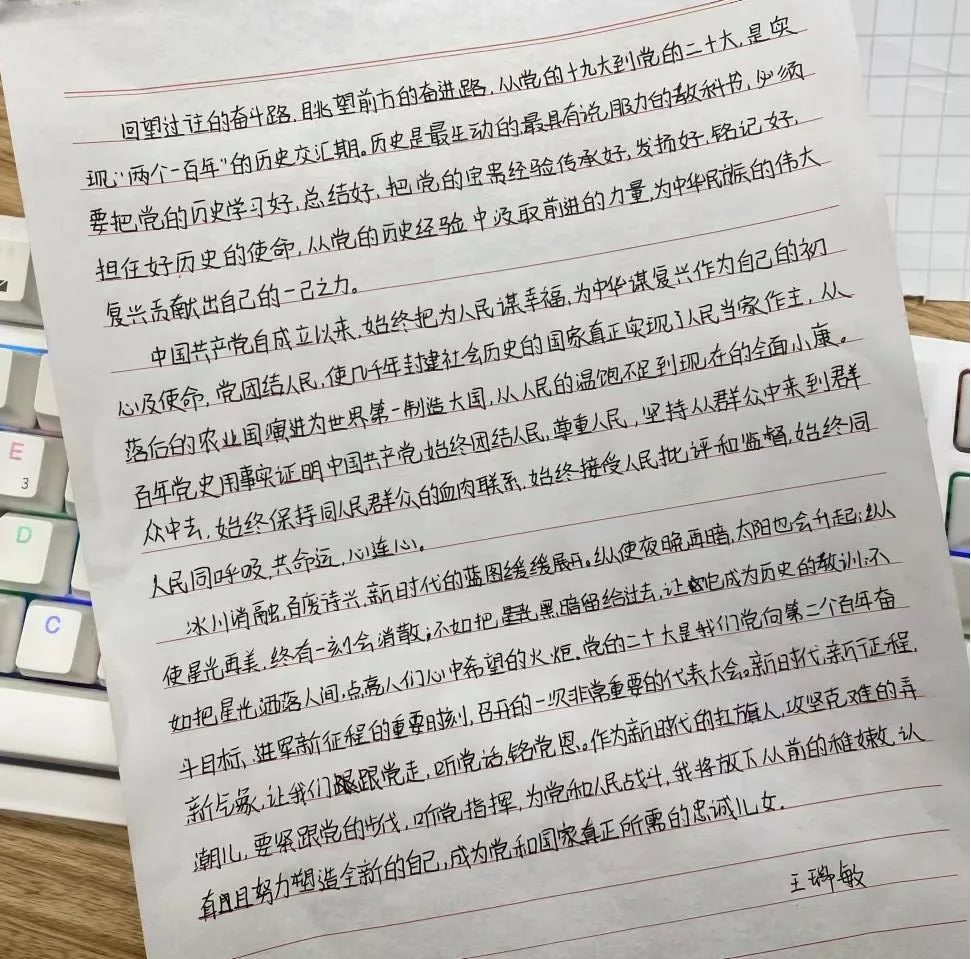 回望过往的奋斗路,眺望前方的奋进路,从党的十九大到党的二十大,是实
现“两个一百年”的历史交汇期。历史是最生动的最具有说服力的教科书,必须
要把党的历史学习好,总结好,把党的宝贵经验传承好,发扬好,铭记好,
担任好历史的使命,从党的历史经验中汲取前进的力量,为中华民族的伟大
复兴贡献出自己的一己之力。
中国共产党自成立以来,始终把为人民谋幸福,为中华谋复兴作为自己的初
心及使命,党团结人民,使几千年封建社会历史的国家真正实现了人民当家作主,从
落后的农业国演进为世界第一制造大国,从人民的温饱不足到现在的全面小康。
百年党史用事实证明中国共产党始终团结人民,尊重人民,坚持从群众中来到群
众中去,始终保持同人民群众的血肉联系,始终接受人民批评和监督,始终同
人民同呼吸,共命运,心连心。
冰川消融,百废待兴,新时代的蓝图缓缓展开。纵使夜晚再暗,太阳也会升起;纵
使星光再美,终有一刻会消散;不如把黑暗留给过去,让它成为历史的教训;不
如把星光洒落人间,点亮人们心中希望的火炬。党的二十大是我们党向第二个百年奋
斗目标,进军新征程的重要时刻,召开的一次非常重要的代表大会。新时代,新征程,
新气象,让我们跟党走,听党话,铭党恩。作为新时代的扛旗人,攻坚克难的弄
潮儿,要紧跟党的步伐,听党指挥,为党和人民战斗,我将放下从前的稚嫩,认
真且努力塑造全新的自己,成为党和国家真正所需的忠诚儿女.
王 敏
E
3
D
C